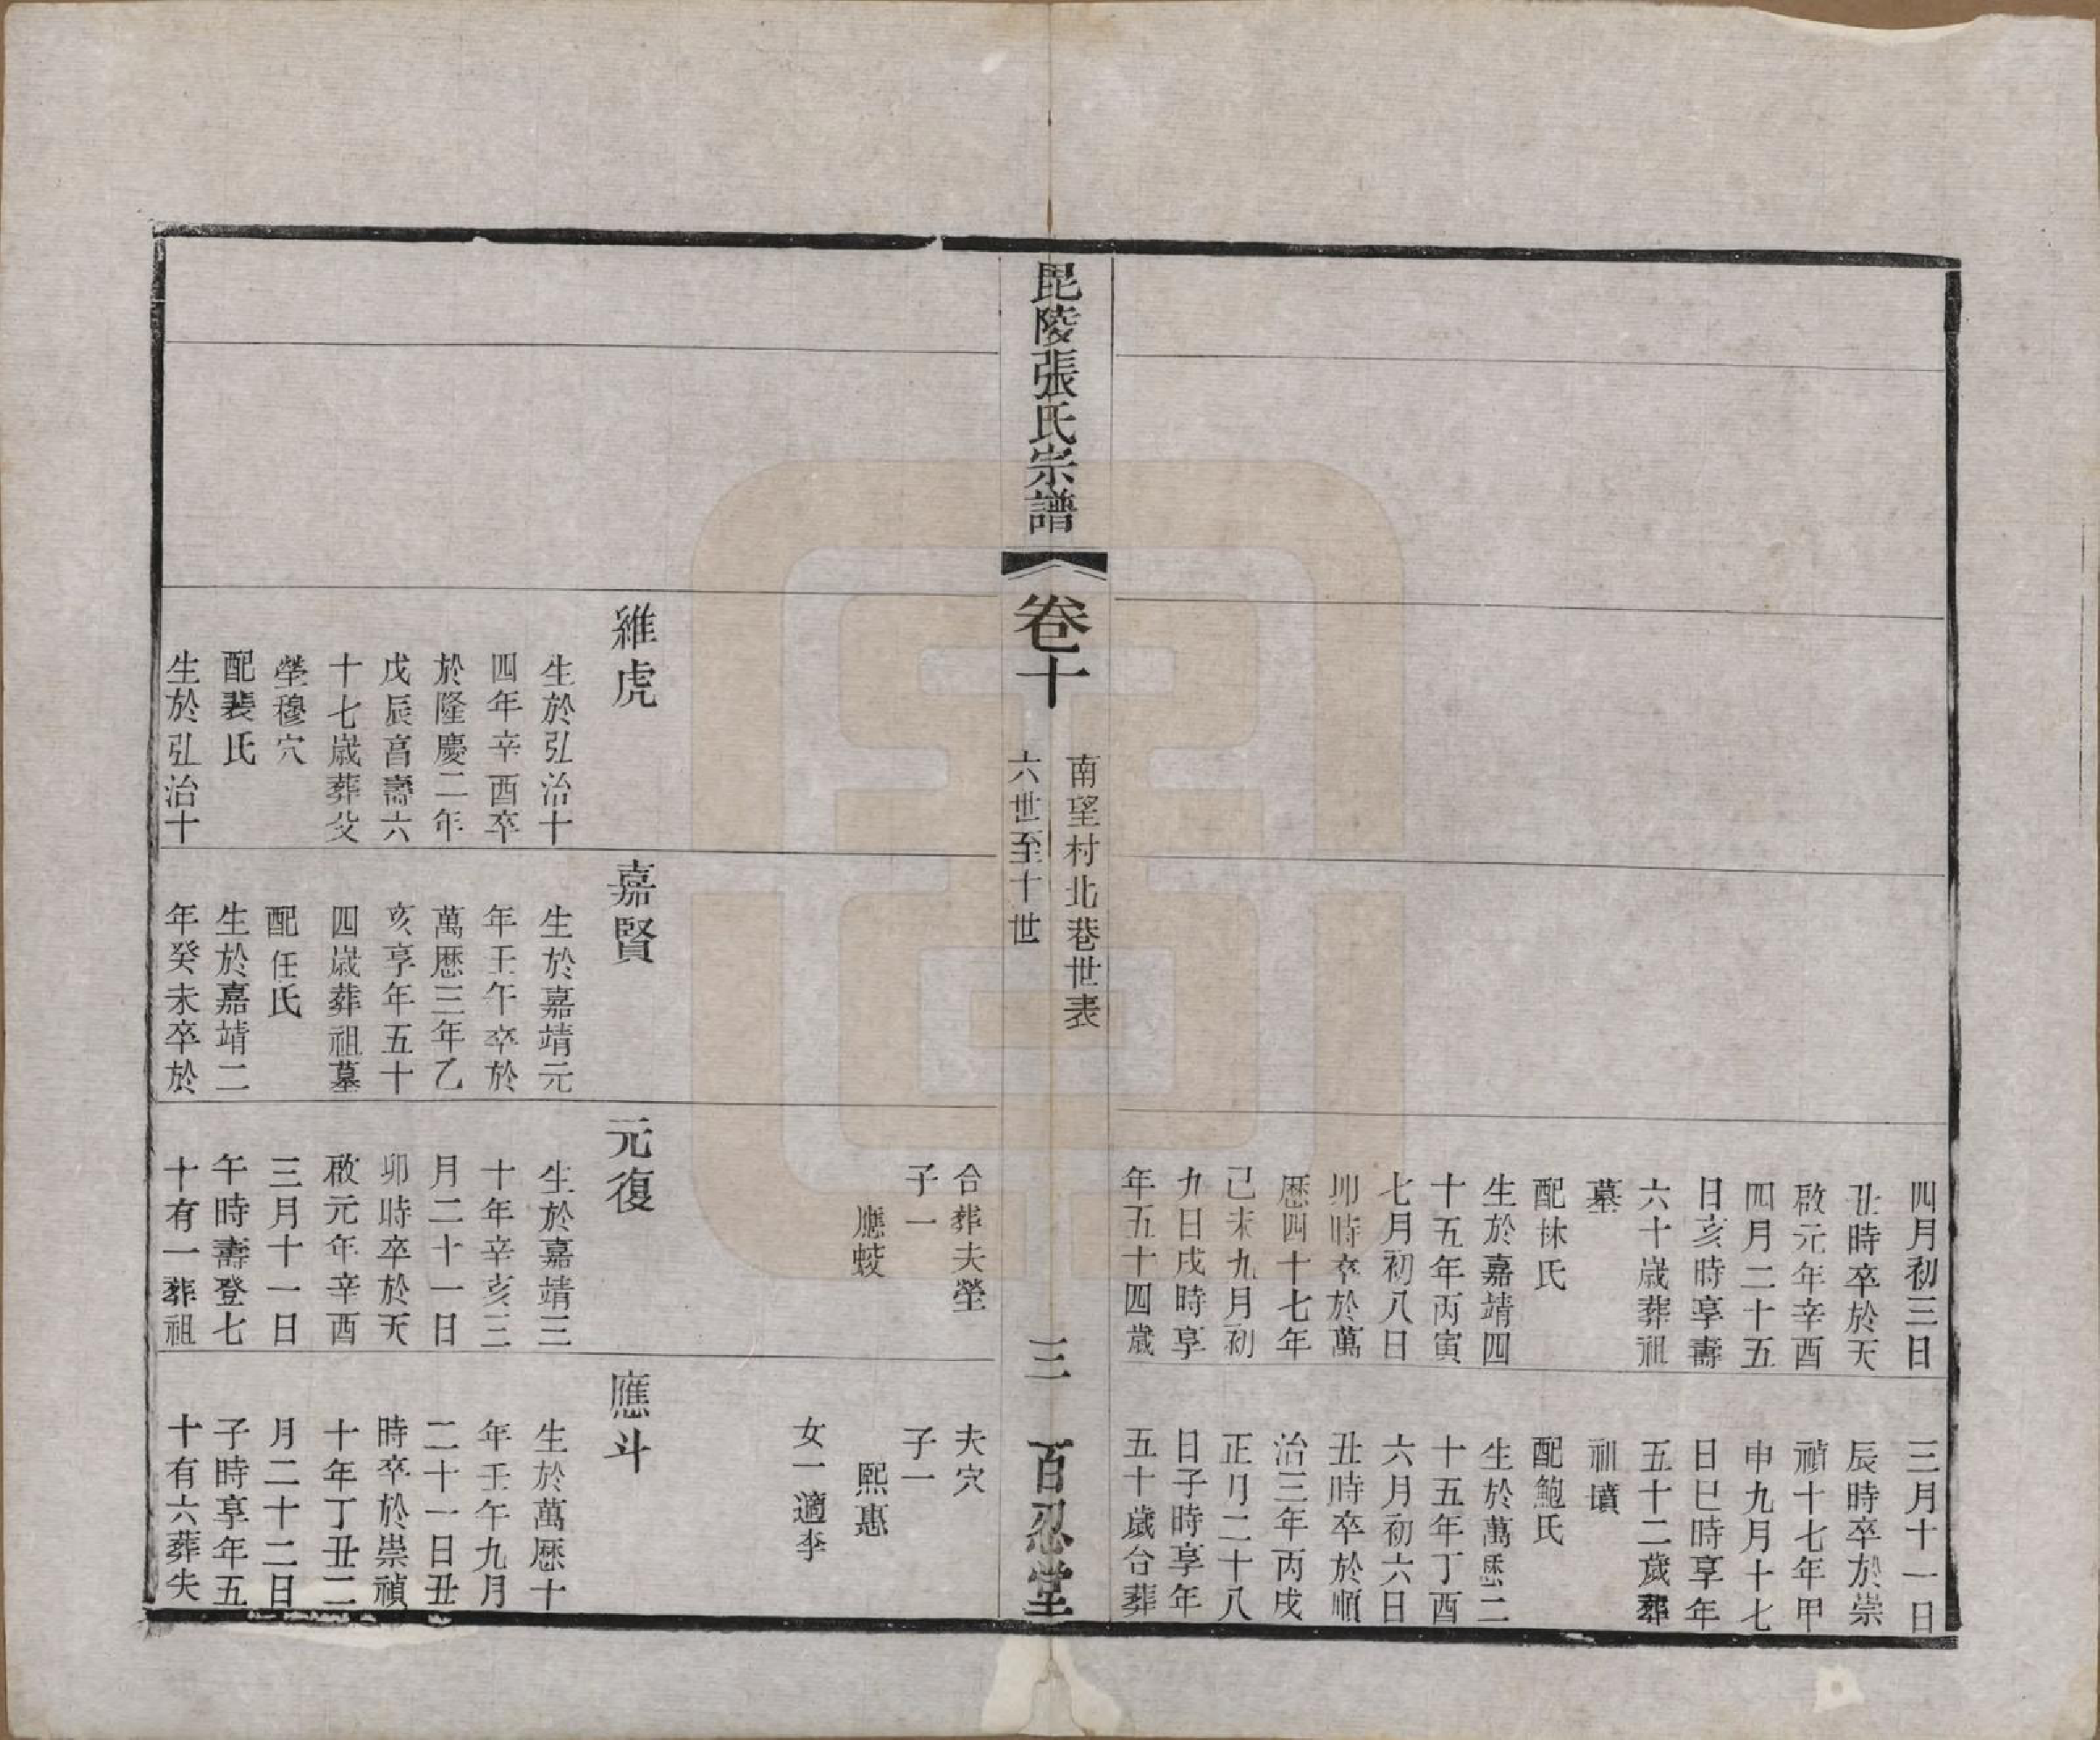 四月初三日
丑時卒於天
啟元年辛酉
四月二十五
日亥時享壽
六十歲葬祖
墓
配林氏
生於嘉靖四
十五年丙寅
七月初八日
卯時卒於萬
歷四十七年
己未九月初
九日戌時享
年五十四歲
三月十一日
辰時卒於崇
禎十七年甲
申九月十七
日巳時享年
五十二歲葬
祖墳
配鮑氏
生於萬歷二
十五年丁酉
六月初六日
丑時卒於順
治三年丙戌
正月二十八
日子時享年
五十歲合葬
毘陵張氏宗譜
卷十
南望村北巷世表
六世至十世
三
百忍堂
維虎
生於弘治十
四年辛酉卒
於隆慶二年
戊辰享壽六
十七歲葬父
塋穆穴
配裴氏
生於弘治十
嘉賢
生於嘉靖元
年壬午卒於
萬歷三年乙
亥享年五十
四歲葬祖墓
配任氏
生於嘉靖二
年癸未卒於
合葬夫塋
子一
應蛟
元復
生於嘉靖三
十年辛亥三
月二十一日
卯時卒於天
啟元年辛酉
三月十一日
午時壽登七
十有一葬祖
夫穴
子一
熙惠
女一適李
應斗
生於萬歷十
年壬午九月
二十一日丑
時卒於崇禎
十年丁丑二
月二十二日
子時享年五
十有六葬失